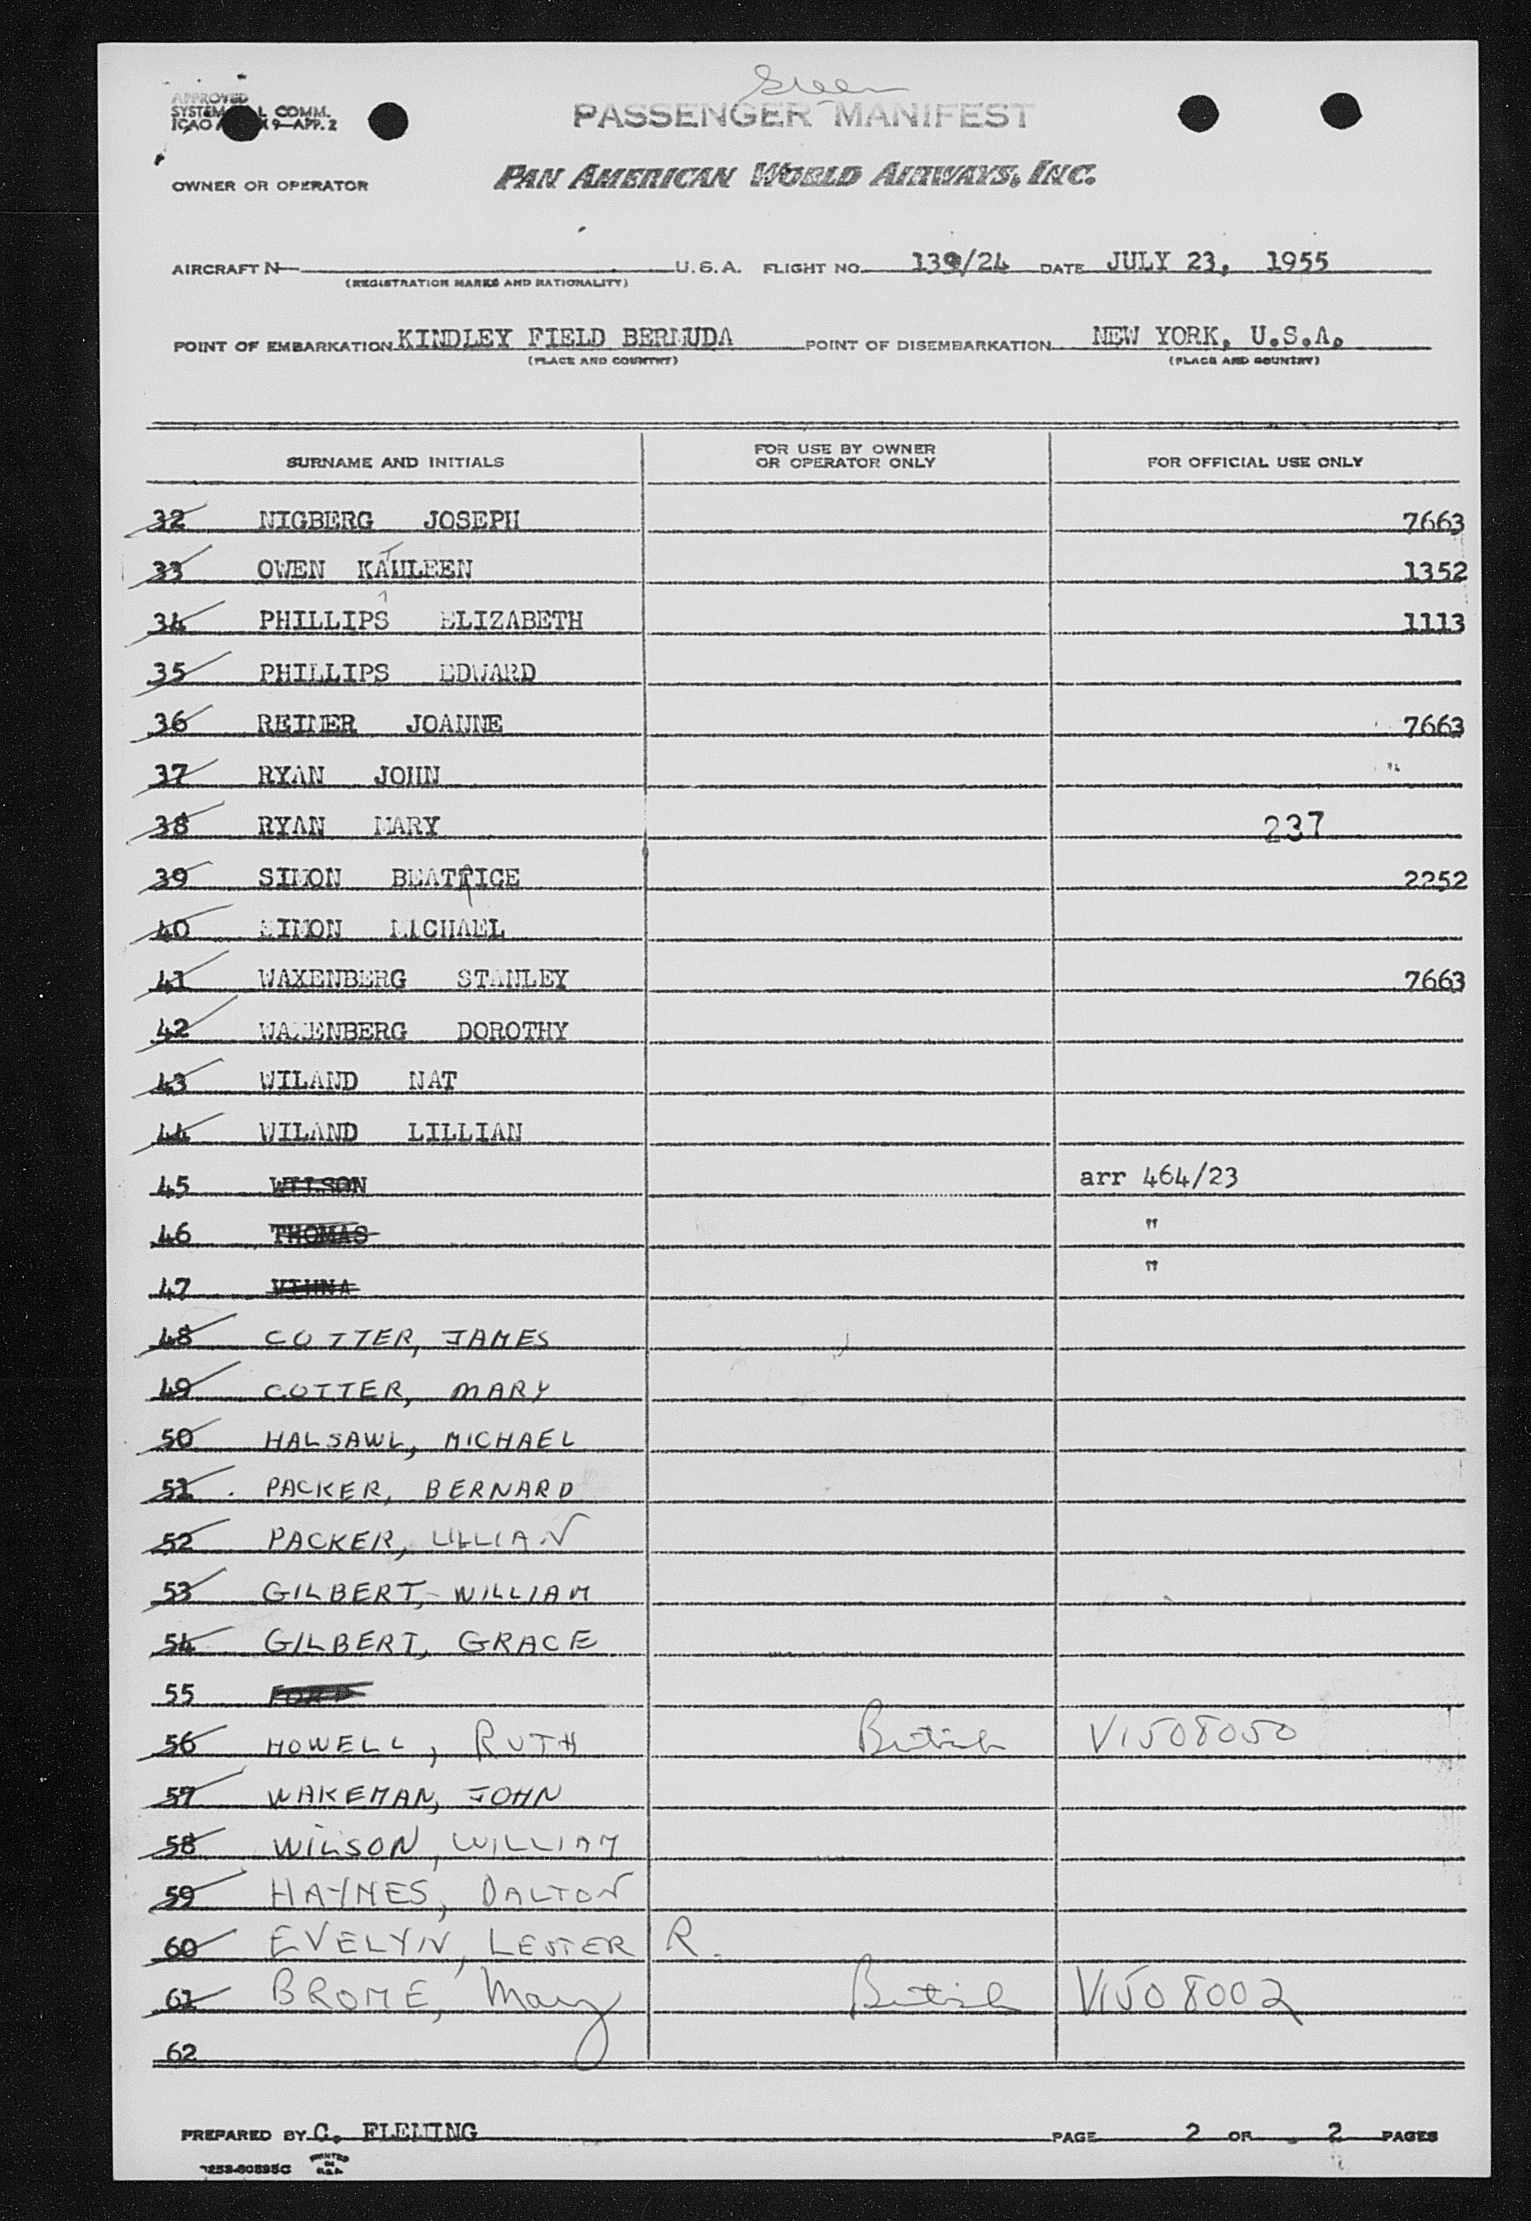 Green
APPROVED
SYSTEM L COMM.
ICAO A X 9—APP. 2
PASSENGER MANIFEST
OWNER OR OPERATOR PAN AMERICAN WORLD AIRWAYS, INC.
AIRCRAFT N U.S.A. FLIGHT NO. 139/24 DATE JULY 23, 1955
(REGISTRATION MARKS AND NATIONALITY)
POINT OF EMBARKATION KINDLEY FIELD BERMUDA POINT OF DISEMBARKATION NEW YORK, U.S.A.
(PLACE AND COUNTRY) (PLACE AND COUNTRY)
SURNAME AND INITIALS FOR USE BY OWNER OR OPERATOR ONLY FOR OFFICIAL USE ONLY
32 NIGBERG JOSEPH 7663
33 OWEN 1352
34 PHILLIPS ELIZABETH 1113
35 PHILLIPS EDWARD
36 REIMER JOANNE 7663
37 RYAN JOHN "
38 RYAN MARY 237
39 SIMON BEATRICE 2252
40 SIMON MICHAEL
41 WAXENBERG STANLEY 7663
42 WAXENBERG DOROTHY
43 WILAND NAT
44 WILAND LILLIAN
45 WILSON arr 464/23
46 THOMAS "
47 "
48 COTTER, JAMES
49 COTTER, MARY
50 HALSAWL, MICHAEL
51 PACKER, BERNARD
52 PACKER, LILLIAN
53 GILBERT, WILLIAM
54 GILBERT, GRACE
55 FORD
56 HOWELL, RUTH British V1508050
57 WAKEMAN, JOHN
58 WILSON, WILLIAM
59 HAYNES, DALTON
60 EVELYN, LESTER R.
61 BROME, Mary British V1508002
62
PREPARED BY C. FLEMING PAGE 2 OF 2 PAGES
PRINTED
IN
U.S.A.